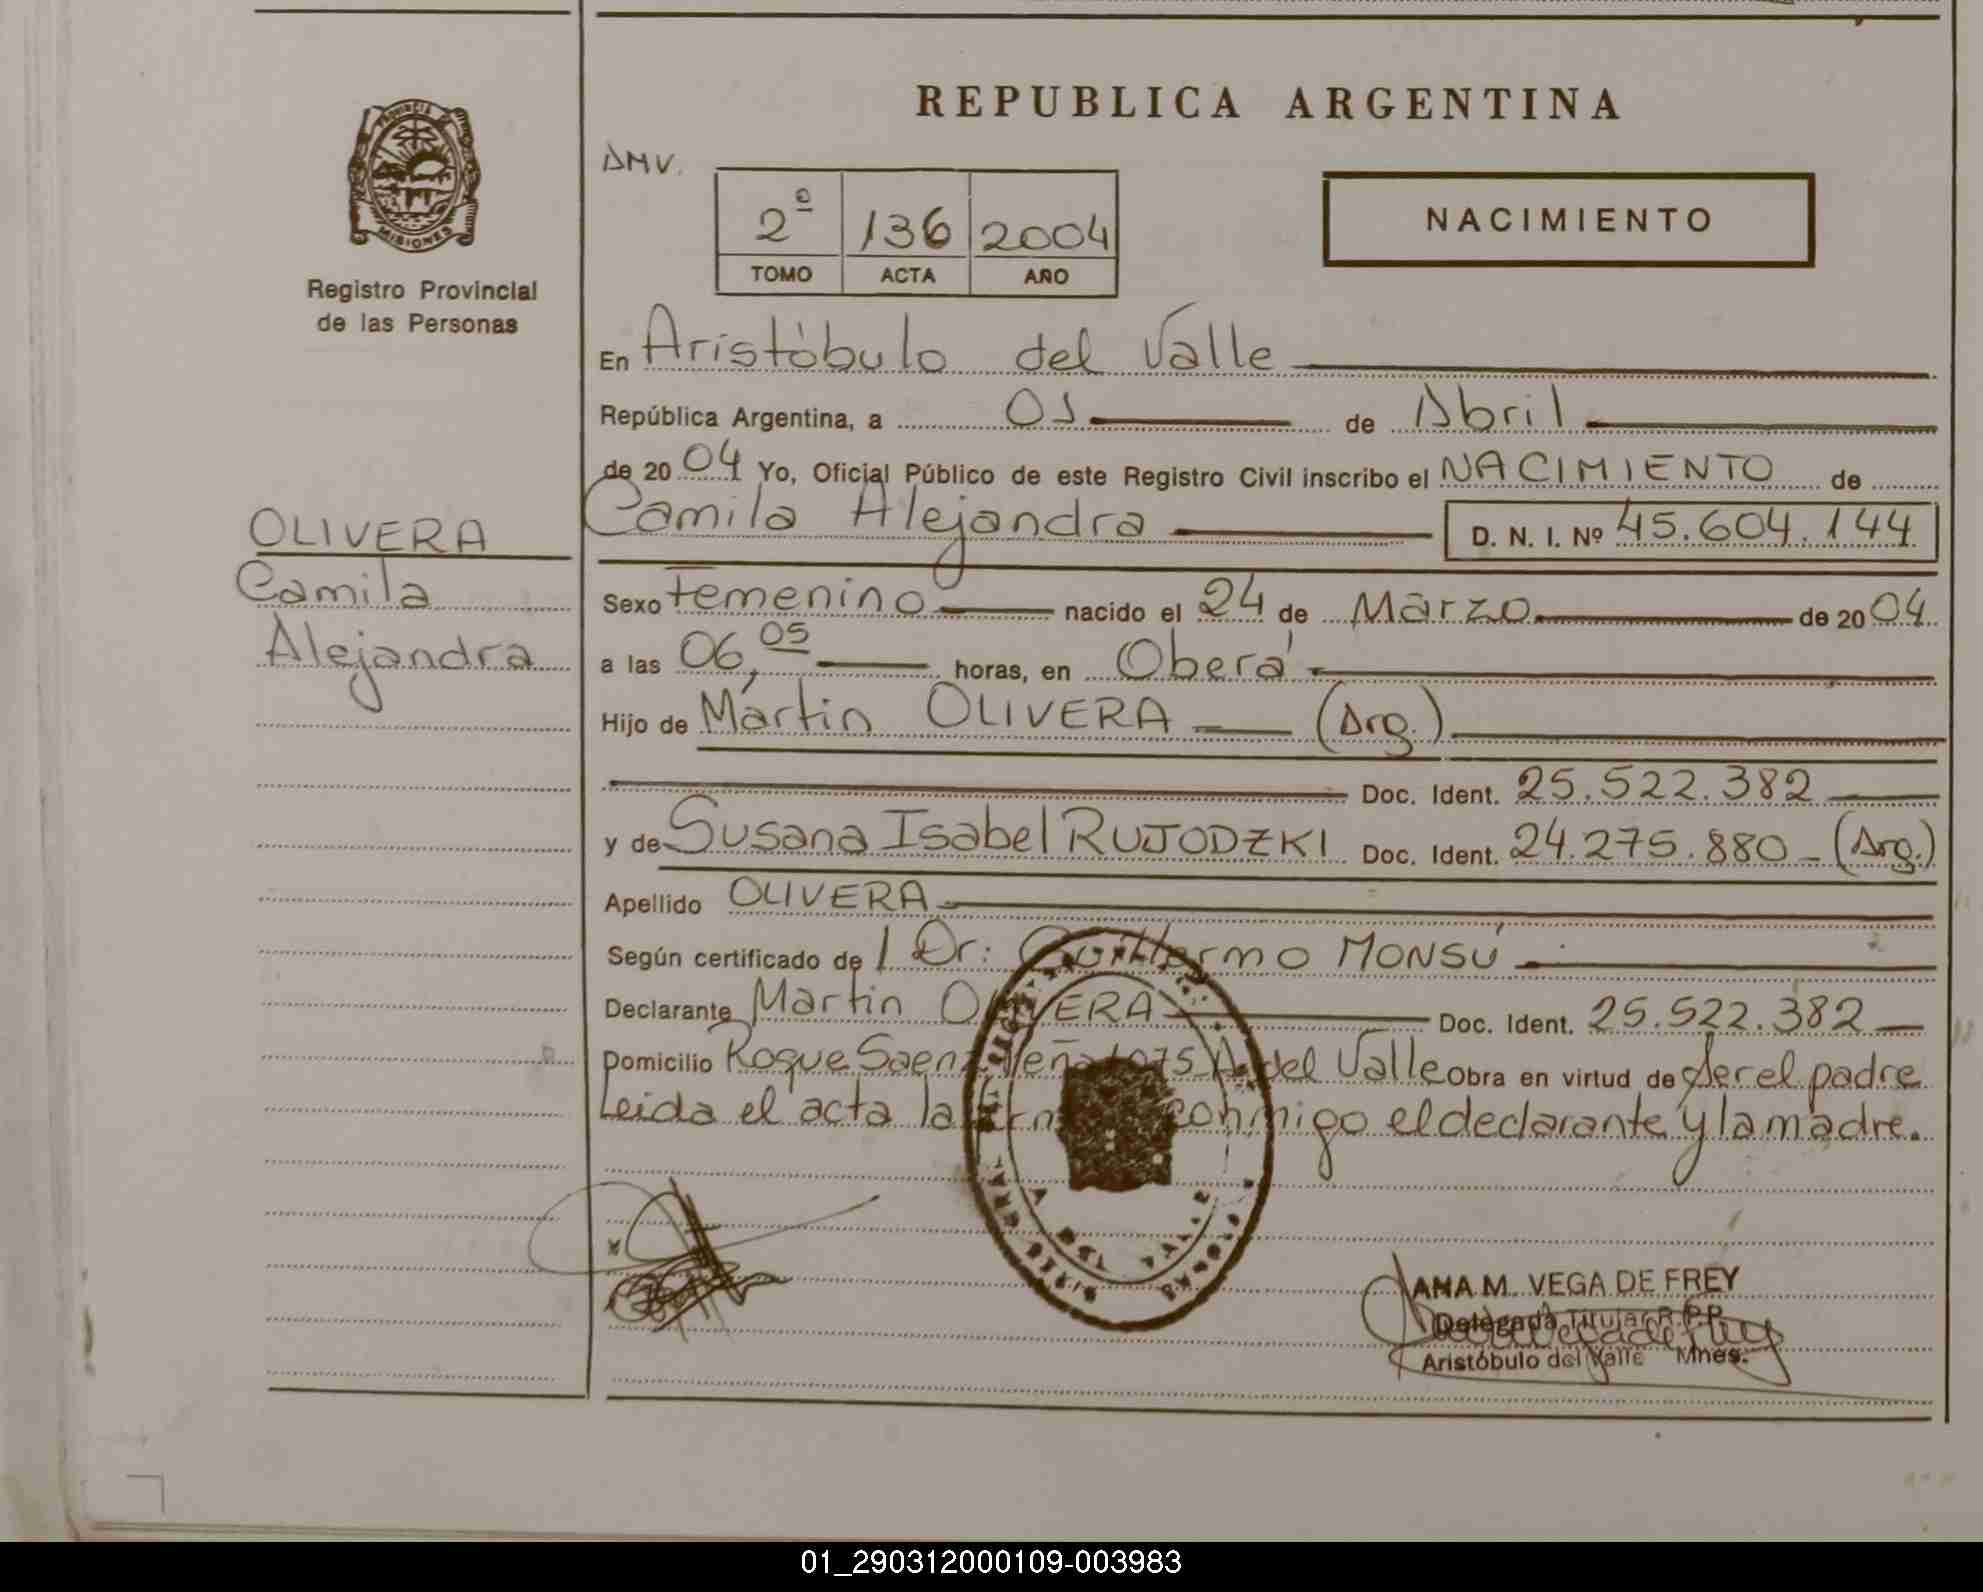 REPUBLICA ARGENTINA
PROVINCIA DE
MISIONES
Registro Provincial
de las Personas
AMV.
2º 136 2004
TOMO ACTA AÑO
NACIMIENTO
En Aristóbulo del Valle
República Argentina, a 01 de Abril
de 2004 Yo, Oficial Público de este Registro Civil inscribo el NACIMIENTO de
Camila Alejandra D. N. I. Nº 45.604.144
OLIVERA
Camila
Alejandra
Sexo Femenino nacido el 24 de Marzo de 2004
a las 06,05 horas, en Oberá
Hijo de Martin OLIVERA (Arg.)
Doc. Ident. 25.522.382
y de Susana Isabel RUJODZKI Doc. Ident. 24.275.880 - (Arg.)
Apellido OLIVERA
Según certificado de l Dr: Guillermo MONSÚ
Declarante Martin OLIVERA Doc. Ident. 25.522.382
Domicilio Roque Saenz Peña 1075 A. del Valle Obra en virtud de Ser el padre
Leida el acta la conmigo el declarante y la madre.
ANA M. VEGA DE FREY
Delegada Titular R.P.P.
Aristóbulo del Valle Mnes.
01_290312000109-003983